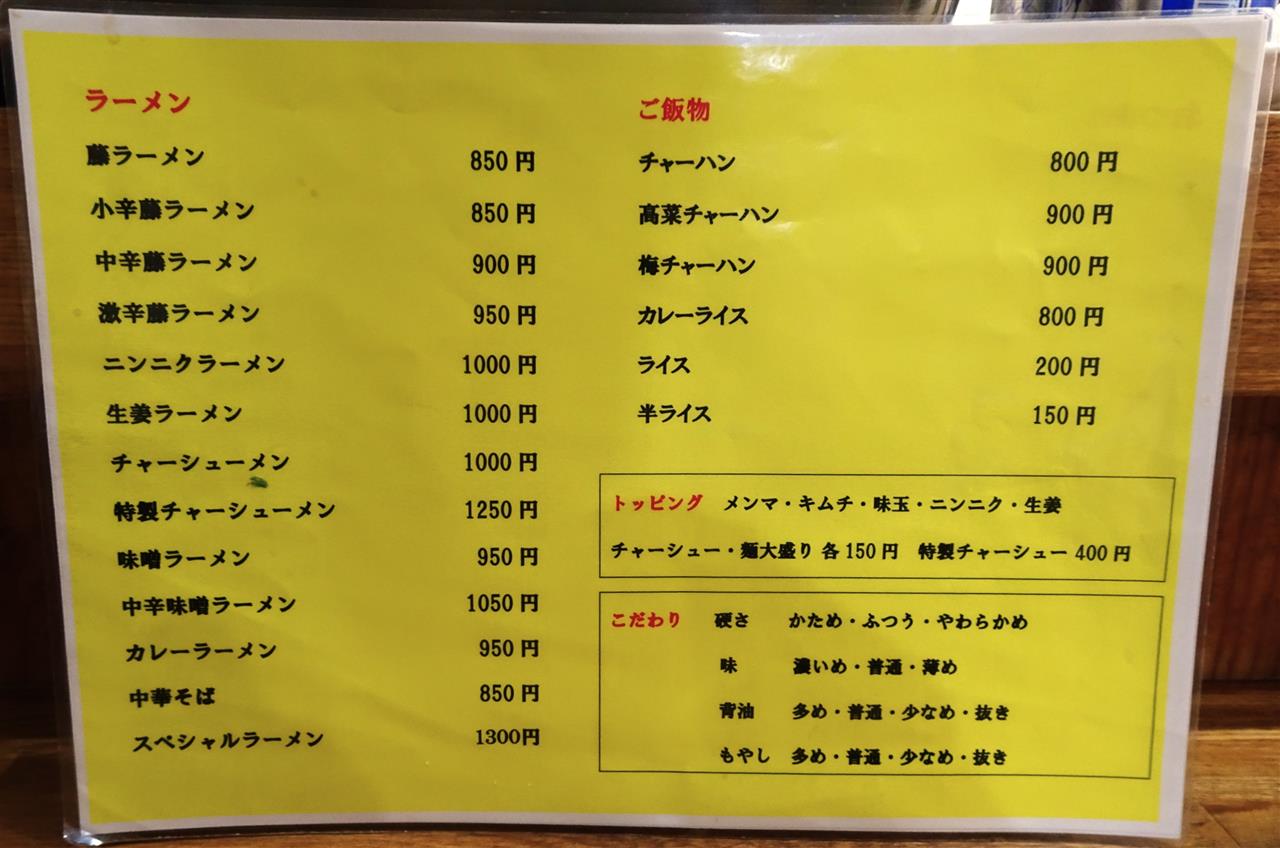 ラーメン
藤ラーメン 850円
小辛藤ラーメン 850円
中辛藤ラーメン 900円
激辛藤ラーメン 950円
ニンニクラーメン 1000円
生姜ラーメン 1000円
チャーシューメン 1000円
特製チャーシューメン 1250円
味噌ラーメン 950円
中辛味噌ラーメン 1050円
カレーラーメン 950円
中華そば 850円
スペシャルラーメン 1300円
ご飯物
チャーハン 800円
高菜チャーハン 900円
梅チャーハン 900円
カレーライス 800円
ライス 200円
半ライス 150円
トッピング メンマ・キムチ・味玉・ニンニク・生姜
チャーシュー・麺大盛り 各150円 特製チャーシュー 400円
こだわり 硬さ かため・ふつう・やわらかめ
味 濃いめ・普通・薄め
背油 多め・普通・少なめ・抜き
もやし 多め・普通・少なめ・抜き